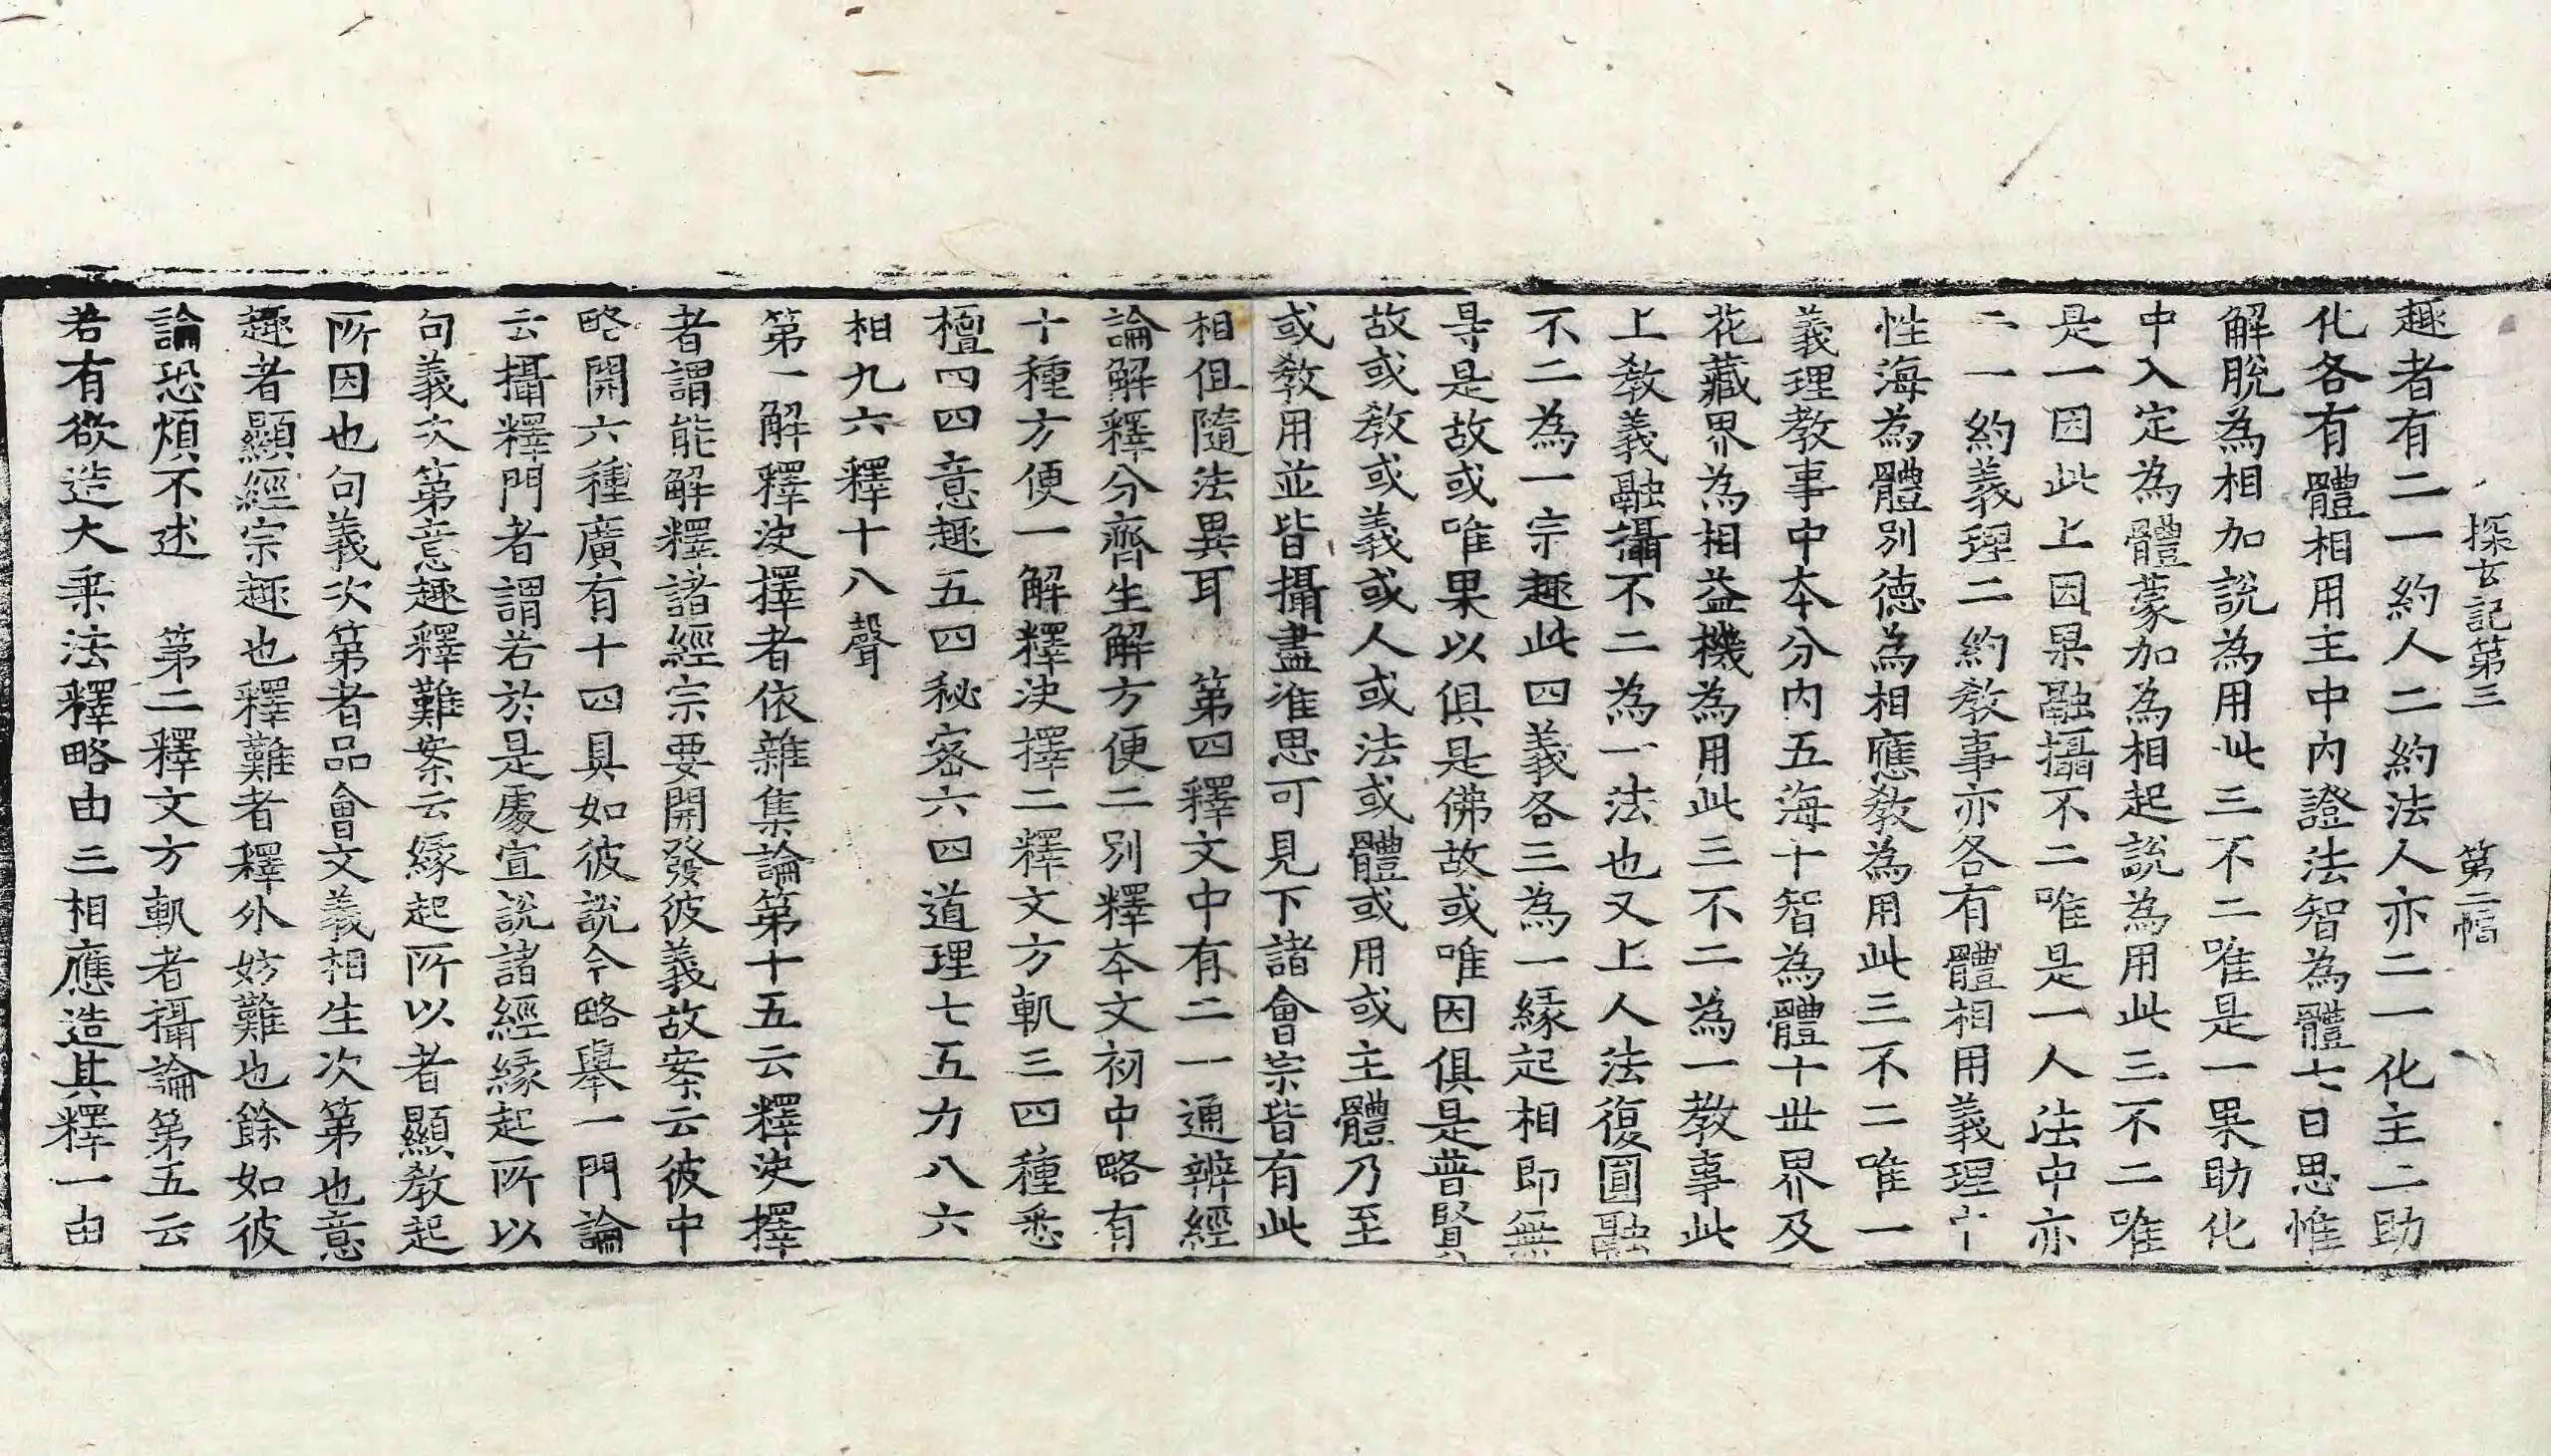 探玄記第三 第二幅
趣者有二一約人二約法人亦二一化主二助
化各有體相用主中内證法智為體七日思惟
解脫為相加說為用此三不二唯是一果助化
中入定為體蒙加為相起說為用此三不二唯
是一因此上因果融攝不二唯是一人法中亦
二一約義理二約教事亦各有體相用義理中
性海為體別德為相應教為用此三不二唯一
義理教事中本分内五海十智為體十世界及
花藏界為相益機為用此三不二為一教事此
上教義融攝不二為一法也又上人法復圓融
不二為一宗趣此四義各三為一緣起相即無
㝵是故或唯果以俱是佛故或唯因俱是普賢
故或教或義或人或法或體或用或主體乃至
或教用並皆攝盡准思可見下諸會宗皆有此
相但隨法異耳 第四釋文中有二一通辨經
論解釋分齊生解方便二別釋本文初中略有
十種方便一解釋決擇二釋文方軌三四種悉
檀四四意趣五四秘密六四道理七五力八六
相九六釋十八聲
第一解釋決擇者依雜集論第十五云釋決擇
者謂能解釋諸經宗要開發彼義故案云彼中
略開六種廣有十四具如彼說今略舉一門論
云攝釋門者謂若於是處宣說諸經緣起所以
句義次第意趣釋難案云緣起所以者顯教起
所因也句義次第者品會文義相生次第也意
趣者顯經宗趣也釋難者釋外妨難也餘如彼
論恐煩不述 第二釋文方軌者攝論第五云
若有欲造大乘法釋略由三相應造其釋一由